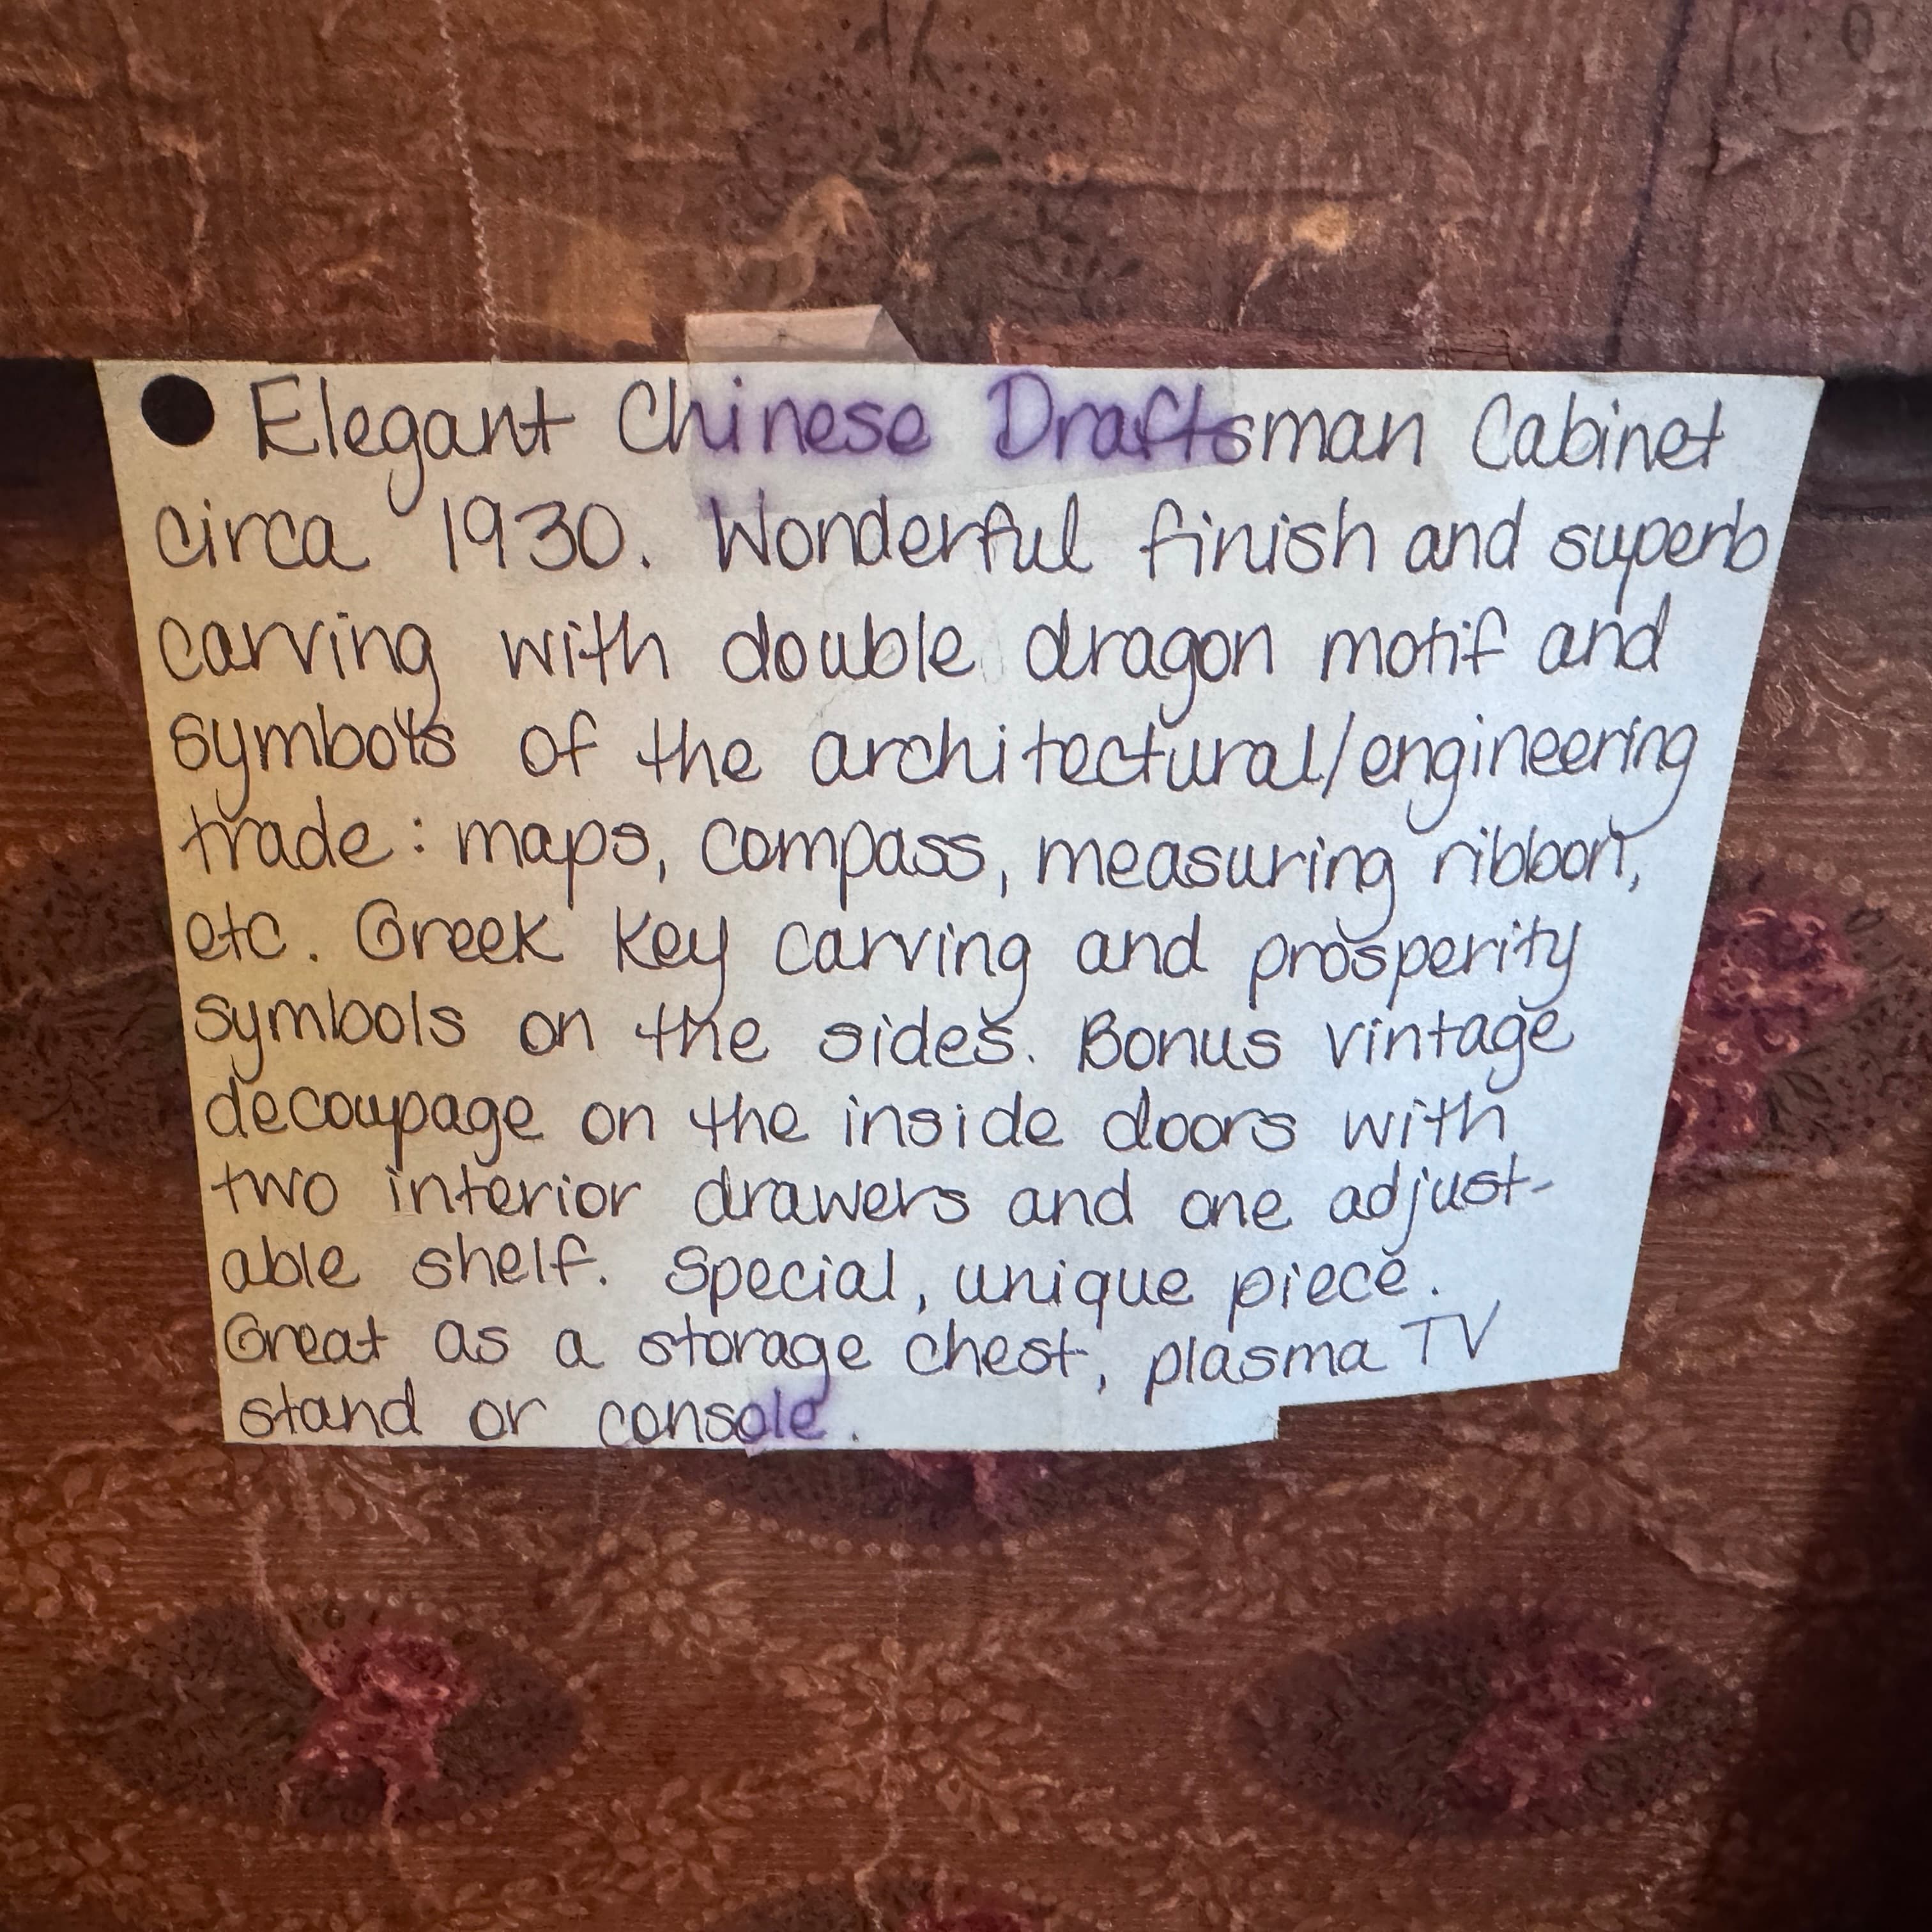 ● Elegant Chinese Draftsman Cabinet
circa 1930. Wonderful finish and superb
carving with double dragon motif and
symbols of the architectural/engineering
trade: maps, compass, measuring ribbon,
etc. Greek Key carving and prosperity
symbols on the sides. Bonus vintage
decoupage on the inside doors with
two interior drawers and one adjust-
able shelf. Special, unique piece.
Great as a storage chest, plasma TV
stand or console.